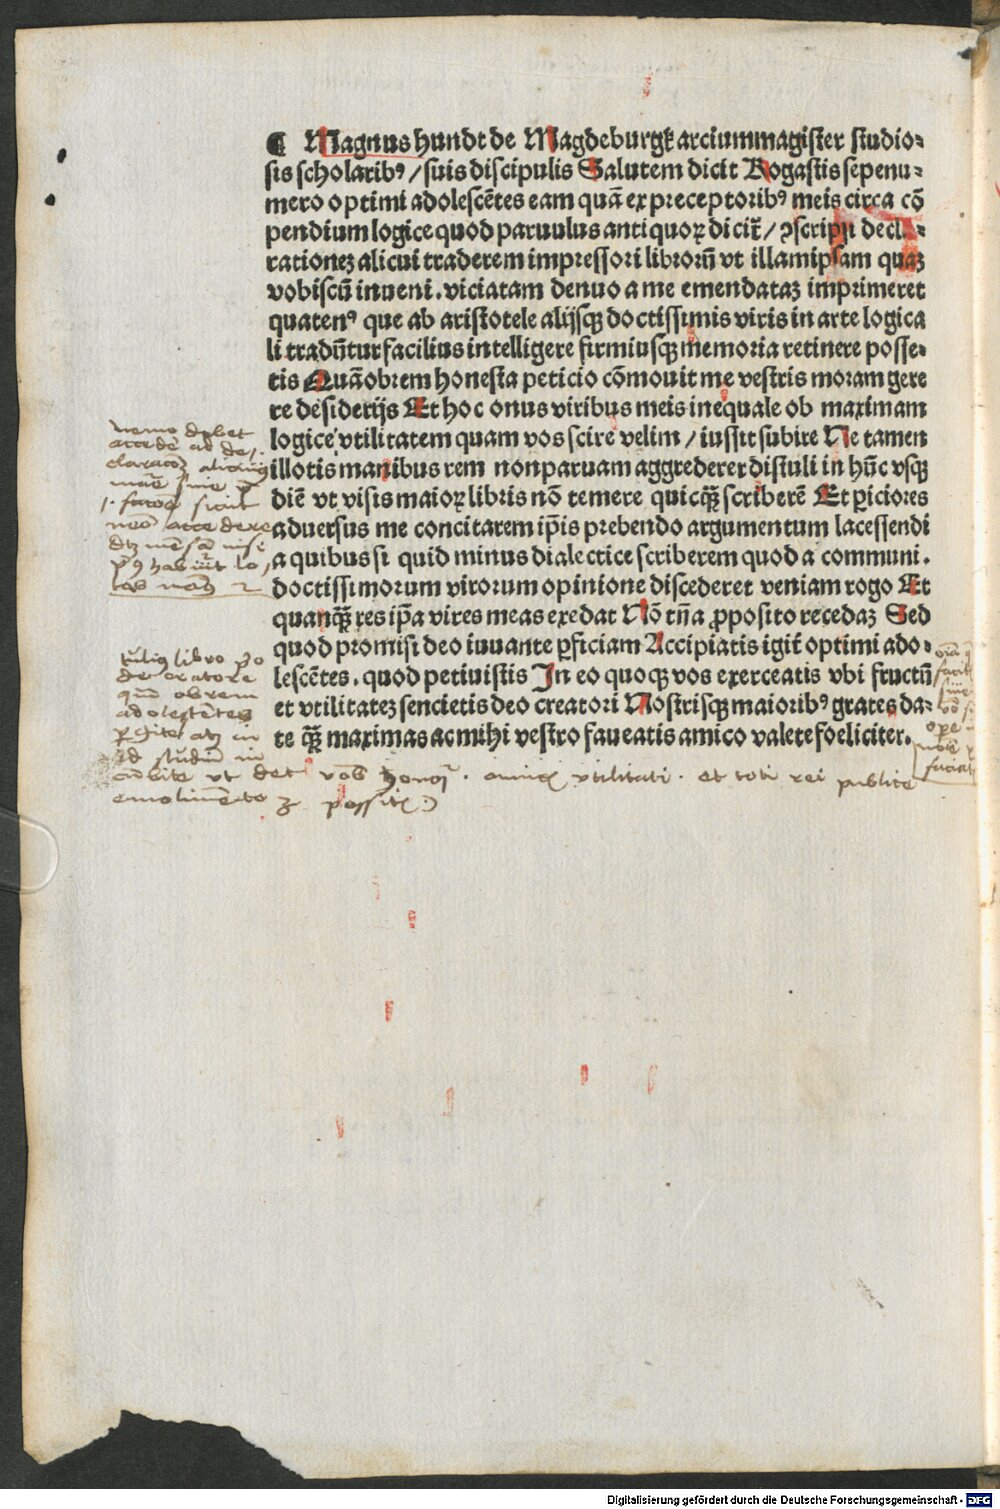 ¶ Magnus hundt de Magdeburgk arcium magister studio⸗
sis scholaribꝰ / suis discipulis Salutem dicit Rogastis sepenu⸗
mero optimi adolescētes eam quā ex preceptoribꝰ meis circa cō
pendium logice quod paruulus antiquoꝝ dicit̄ / ꝯscripsi decla⸗
rationeꝫ alicui traderem impressori librorū vt illam ipsam quaꝫ
vobiscū inueni. viciatam denuo a me emendataꝫ imprimeret
quatenꝰ que ab aristotele alijsqꝫ doctissimis viris in arte logica
li tradūtur facilius intelligere firmiusqꝫ memoria retinere posse⸗
tis Quāobrem honesta peticio cōmouit me vestris moram gere
re desiderijs Et hoc onus viribus meis inequale ob maximam
logice vtilitatem quam vos scire velim / iussit subire Ne tamen
illotis manibus rem non paruam aggrederer distuli in hūc vsqꝫ
diē vt visis maioꝝ libris nō temere quicqꝫ̄ scriberē Et ꝑiciores
aduersus me concitarem ip̄is prebendo argumentum lacessendi
a quibus si quid minus dialectice scriberem quod a communi.
doctissimorum virorum opinione discederet veniam rogo Et
quanqꝫ̄ res ip̄a vires meas exedat Nō tn̄a ꝓposito recedaꝫ Sed
quod promisi deo iuuante ꝑficiam Accipiatis igit̄ optimi ado⸗
lescētes. quod petiuistis In eo quoqꝫ vos exerceatis vbi fructū
et vtilitateꝫ sencietis deo creatori Nostrisqꝫ maioribꝰ grates da⸗
te qꝫ̄ maximas ac mihi vestro faueatis amico valete foeliciter.
nemo debet
accedē ad de
claracōꝫ alicuiꝰ
sine
sicut
accedere
nisi
tulliꝰ libro pō
de oratore
quā obrem
adolescētes
ꝑgite atqꝫ in
id studiū in
cūbite vt et vob honori. amicis vtilitati. et toti rei publice
emolimēto
faciat
Digitalisierung gefördert durch die Deutsche Forschungsgemeinschaft - DFG